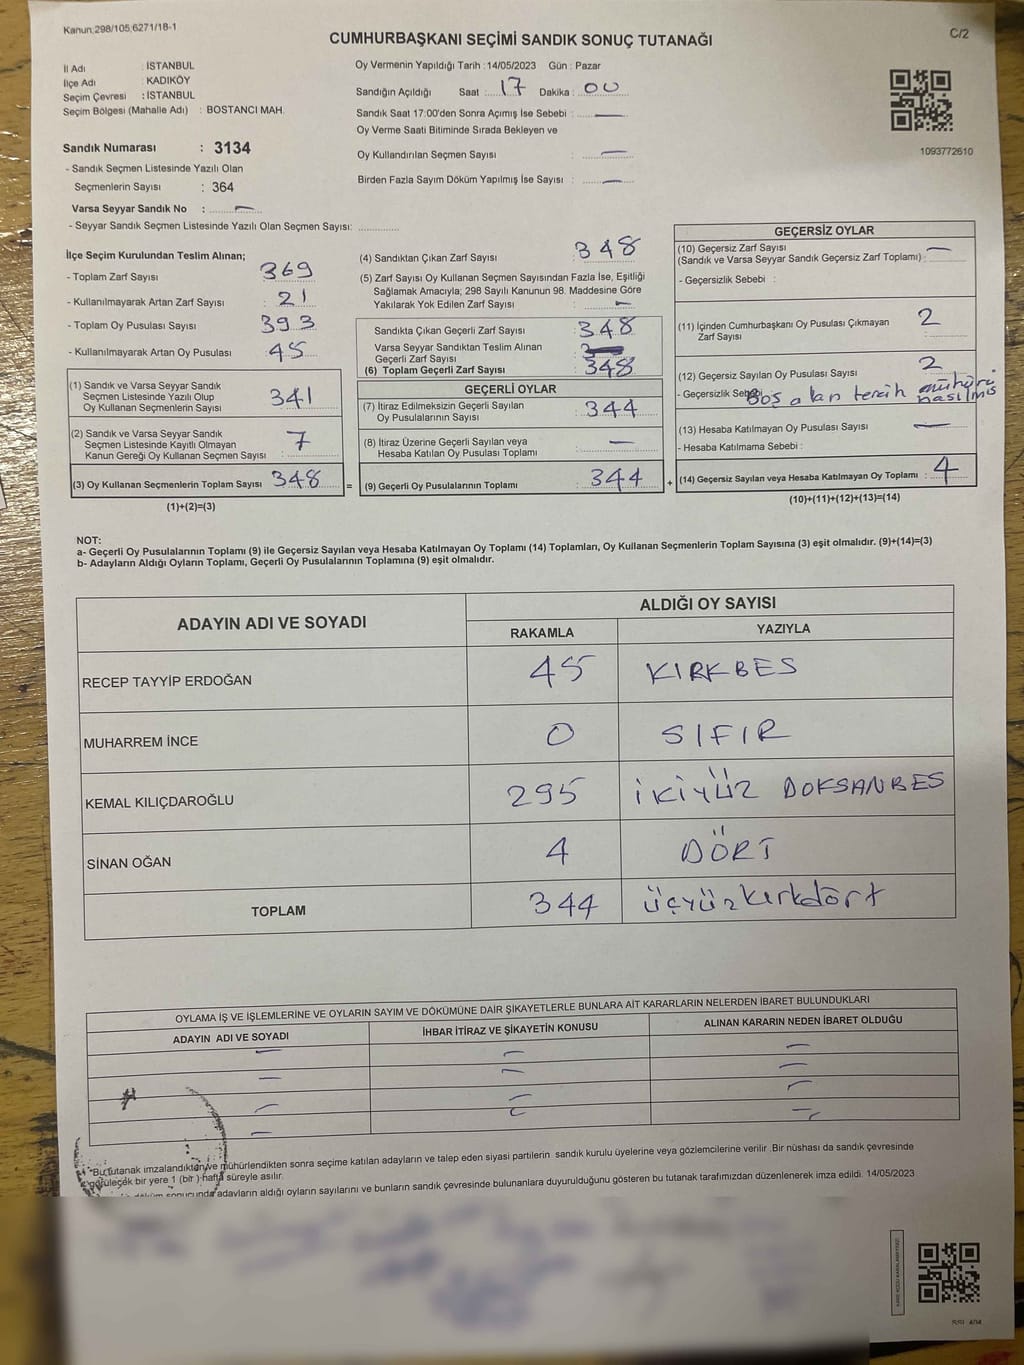 Kanun:298/105,6271/18-1
CUMHURBAŞKANI SEÇİMİ SANDIK SONUÇ TUTANAĞI
C/2
İl Adı : İSTANBUL
İlçe Adı : KADIKÖY
Seçim Çevresi : İSTANBUL
Seçim Bölgesi (Mahalle Adı) : BOSTANCI MAH.
Sandık Numarası : 3134
- Sandık Seçmen Listesinde Yazılı Olan
Seçmenlerin Sayısı : 364
Varsa Seyyar Sandık No : —
- Seyyar Sandık Seçmen Listesinde Yazılı Olan Seçmen Sayısı: ..............
Oy Vermenin Yapıldığı Tarih : 14/05/2023 Gün : Pazar
Sandığın Açıldığı Saat : 17 Dakika : 00
Sandık Saat 17:00'den Sonra Açımış İse Sebebi : —
Oy Verme Saati Bitiminde Sırada Bekleyen ve
Oy Kullandırılan Seçmen Sayısı : —
Birden Fazla Sayım Döküm Yapılmış İse Sayısı : —
1093772610
İlçe Seçim Kurulundan Teslim Alınan;
- Toplam Zarf Sayısı : 369
- Kullanılmayarak Artan Zarf Sayısı : 21
- Toplam Oy Pusulası Sayısı : 393
- Kullanılmayarak Artan Oy Pusulası : 45
(1) Sandık ve Varsa Seyyar Sandık
Seçmen Listesinde Yazılı Olup
Oy Kullanan Seçmenlerin Sayısı : 341
(2) Sandık ve Varsa Seyyar Sandık
Seçmen Listesinde Kayıtlı Olmayan
Kanun Gereği Oy Kullanan Seçmen Sayısı : 7
(3) Oy Kullanan Seçmenlerin Toplam Sayısı : 348 =
(1)+(2)=(3)
(4) Sandıktan Çıkan Zarf Sayısı : 348
(5) Zarf Sayısı Oy Kullanan Seçmen Sayısından Fazla İse, Eşitliği
Sağlamak Amacıyla; 298 Sayılı Kanunun 98. Maddesine Göre
Yakılarak Yok Edilen Zarf Sayısı : —
Sandıkta Çıkan Geçerli Zarf Sayısı : 348
Varsa Seyyar Sandıktan Teslim Alınan
Geçerli Zarf Sayısı :
(6) Toplam Geçerli Zarf Sayısı : 348
GEÇERLİ OYLAR
(7) İtiraz Edilmeksizin Geçerli Sayılan
Oy Pusulalarının Sayısı : 344
(8) İtiraz Üzerine Geçerli Sayılan veya
Hesaba Katılan Oy Pusulası Toplamı : —
(9) Geçerli Oy Pusulalarının Toplamı : 344 +
GEÇERSİZ OYLAR
(10) Geçersiz Zarf Sayısı
(Sandık ve Varsa Seyyar Sandık Geçersiz Zarf Toplamı) : —
- Geçersizlik Sebebi :
(11) İçinden Cumhurbaşkanı Oy Pusulası Çıkmayan
Zarf Sayısı : 2
(12) Geçersiz Sayılan Oy Pusulası Sayısı : 2
- Geçersizlik Sebebi Boş alan tercih mühürü
basılmış
(13) Hesaba Katılmayan Oy Pusulası Sayısı : —
- Hesaba Katılmama Sebebi :
(14) Geçersiz Sayılan veya Hesaba Katılmayan Oy Toplamı : 4
(10)+(11)+(12)+(13)=(14)
NOT:
a- Geçerli Oy Pusulalarının Toplamı (9) ile Geçersiz Sayılan veya Hesaba Katılmayan Oy Toplamı (14) Toplamları, Oy Kullanan Seçmenlerin Toplam Sayısına (3) eşit olmalıdır. (9)+(14)=(3)
b- Adayların Aldığı Oyların Toplamı, Geçerli Oy Pusulalarının Toplamına (9) eşit olmalıdır.
ADAYIN ADI VE SOYADI
ALDIĞI OY SAYISI
RAKAMLA YAZIYLA
RECEP TAYYİP ERDOĞAN 45 KIRKBES
MUHARREM İNCE 0 SIFIR
KEMAL KILIÇDAROĞLU 295 İKİYÜZ DOKSANBES
SİNAN OĞAN 4 DÖRT
TOPLAM 344 üçyüzkırkdört
OYLAMA İŞ VE İŞLEMLERİNE VE OYLARIN SAYIM VE DÖKÜMÜNE DAİR ŞİKAYETLERLE BUNLARA AİT KARARLARIN NELERDEN İBARET BULUNDUKLARI
ADAYIN ADI VE SOYADI İHBAR İTİRAZ VE ŞİKAYETİN KONUSU ALINAN KARARIN NEDEN İBARET OLDUĞU
"Bu tutanak imzalandıktan ve mühürlendikten sonra seçime katılan adayların ve talep eden siyasi partilerin sandık kurulu üyelerine veya gözlemcilerine verilir. Bir nüshası da sandık çevresinde
görülecek bir yere 1 (bir) hafta süreyle asılır.
döküm sonucunda adayların aldığı oyların sayılarını ve bunların sandık çevresinde bulunanlara duyurulduğunu gösteren bu tutanak tarafımızdan düzenlenerek imza edildi. 14/05/2023